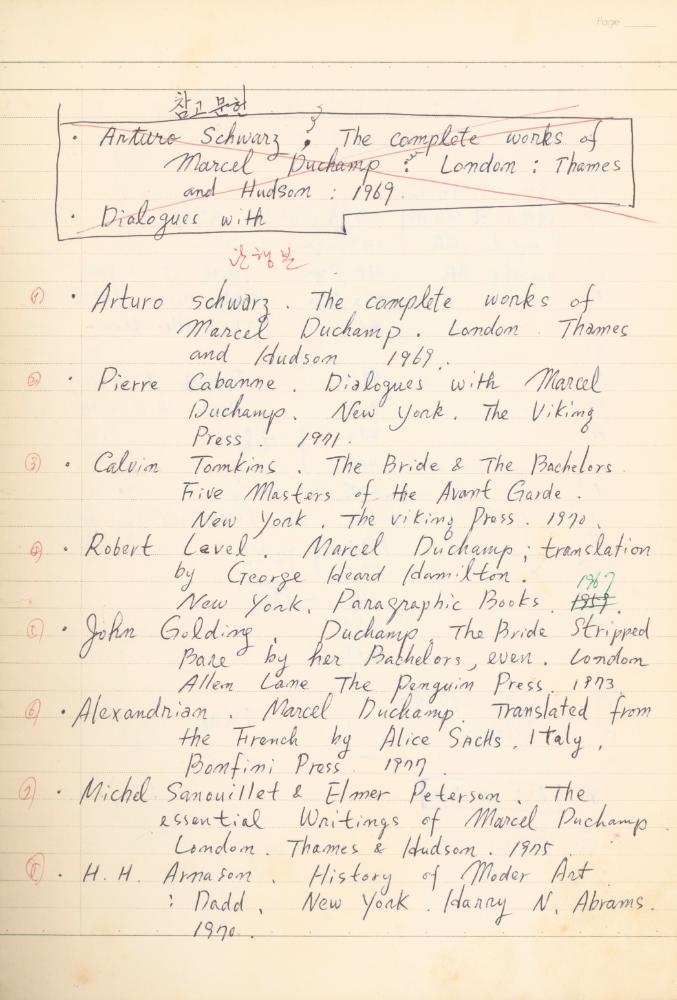 Page
참고 문헌
· Arturo Schwarz : The complete works of
Marcel Duchamp : London : Thames
and Hudson : 1969.
· Dialogues with
단행본
① · Arturo schwarz . The complete works of
Marcel Duchamp . London . Thames
and Hudson 1969.
② · Pierre Cabanne . Dialogues with Marcel
Duchamp. New York. The Viking
Press . 1971.
③ · Calvin Tomkins . The Bride & The Bachelors
Five Masters of the Avant Garde .
New York . The viking Press . 1970.
④ · Robert Level . Marcel Duchamp ; translation
by George Heard Hamilton .
1967
New York. Paragraphic Books .
⑤ · John Golding . Duchamp. The Bride Stripped
Bare by her Bachelors, even . London
Allen Lane The Penguin Press. 1973
⑥ · Alexandrian . Marcel Duchamp. Translated from
the French by Alice Sachs . Italy .
Bonfini Press 1977
⑦ · Michel Sanouillet & Elmer Peterson . The
essential Writings of Marcel Duchamp
London . Thames & Hudson . 1975
· H. H. Arnason . History of Moder Art
: Dadd , New York . Harry N. Abrams.
1970.